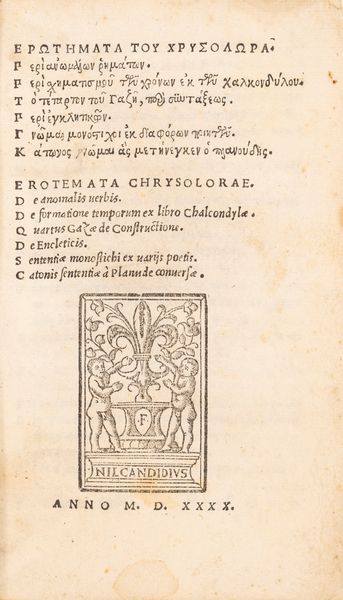 ΕΡΩΤΗΜΑΤΑ ΤΟΥ ΧΡΥΣΟΛΩΡΑ.
Περὶ ἀνωμάλων ῥημάτων.
Περὶ σχηματισμοῦ τῶν χρόνων ἐκ τῶν Χαλκονδύλου.
Τὸ τέταρτον τοῦ Γαζῆ, περὶ συντάξεως.
Περὶ ἐγκλιτικῶν.
Γνῶμαι μονόστιχοι ἐκ διαφόρων ποιητῶν.
Κάτωνος γνῶμαι ἃς μετήνεγκεν ὁ Πλανούδης.
EROTEMATA CHRYSOLORAE.
De anomalis uerbis.
De formatione temporum ex libro Chalcondylæ.
Quartus Gazæ de Constructione.
De Encleticis.
Sententiæ monostichi ex uarijs poetis.
Catonis sententiæ à Planude conuersæ.
F
NIL CANDIDIVS
ANNO M. D. XXXX.